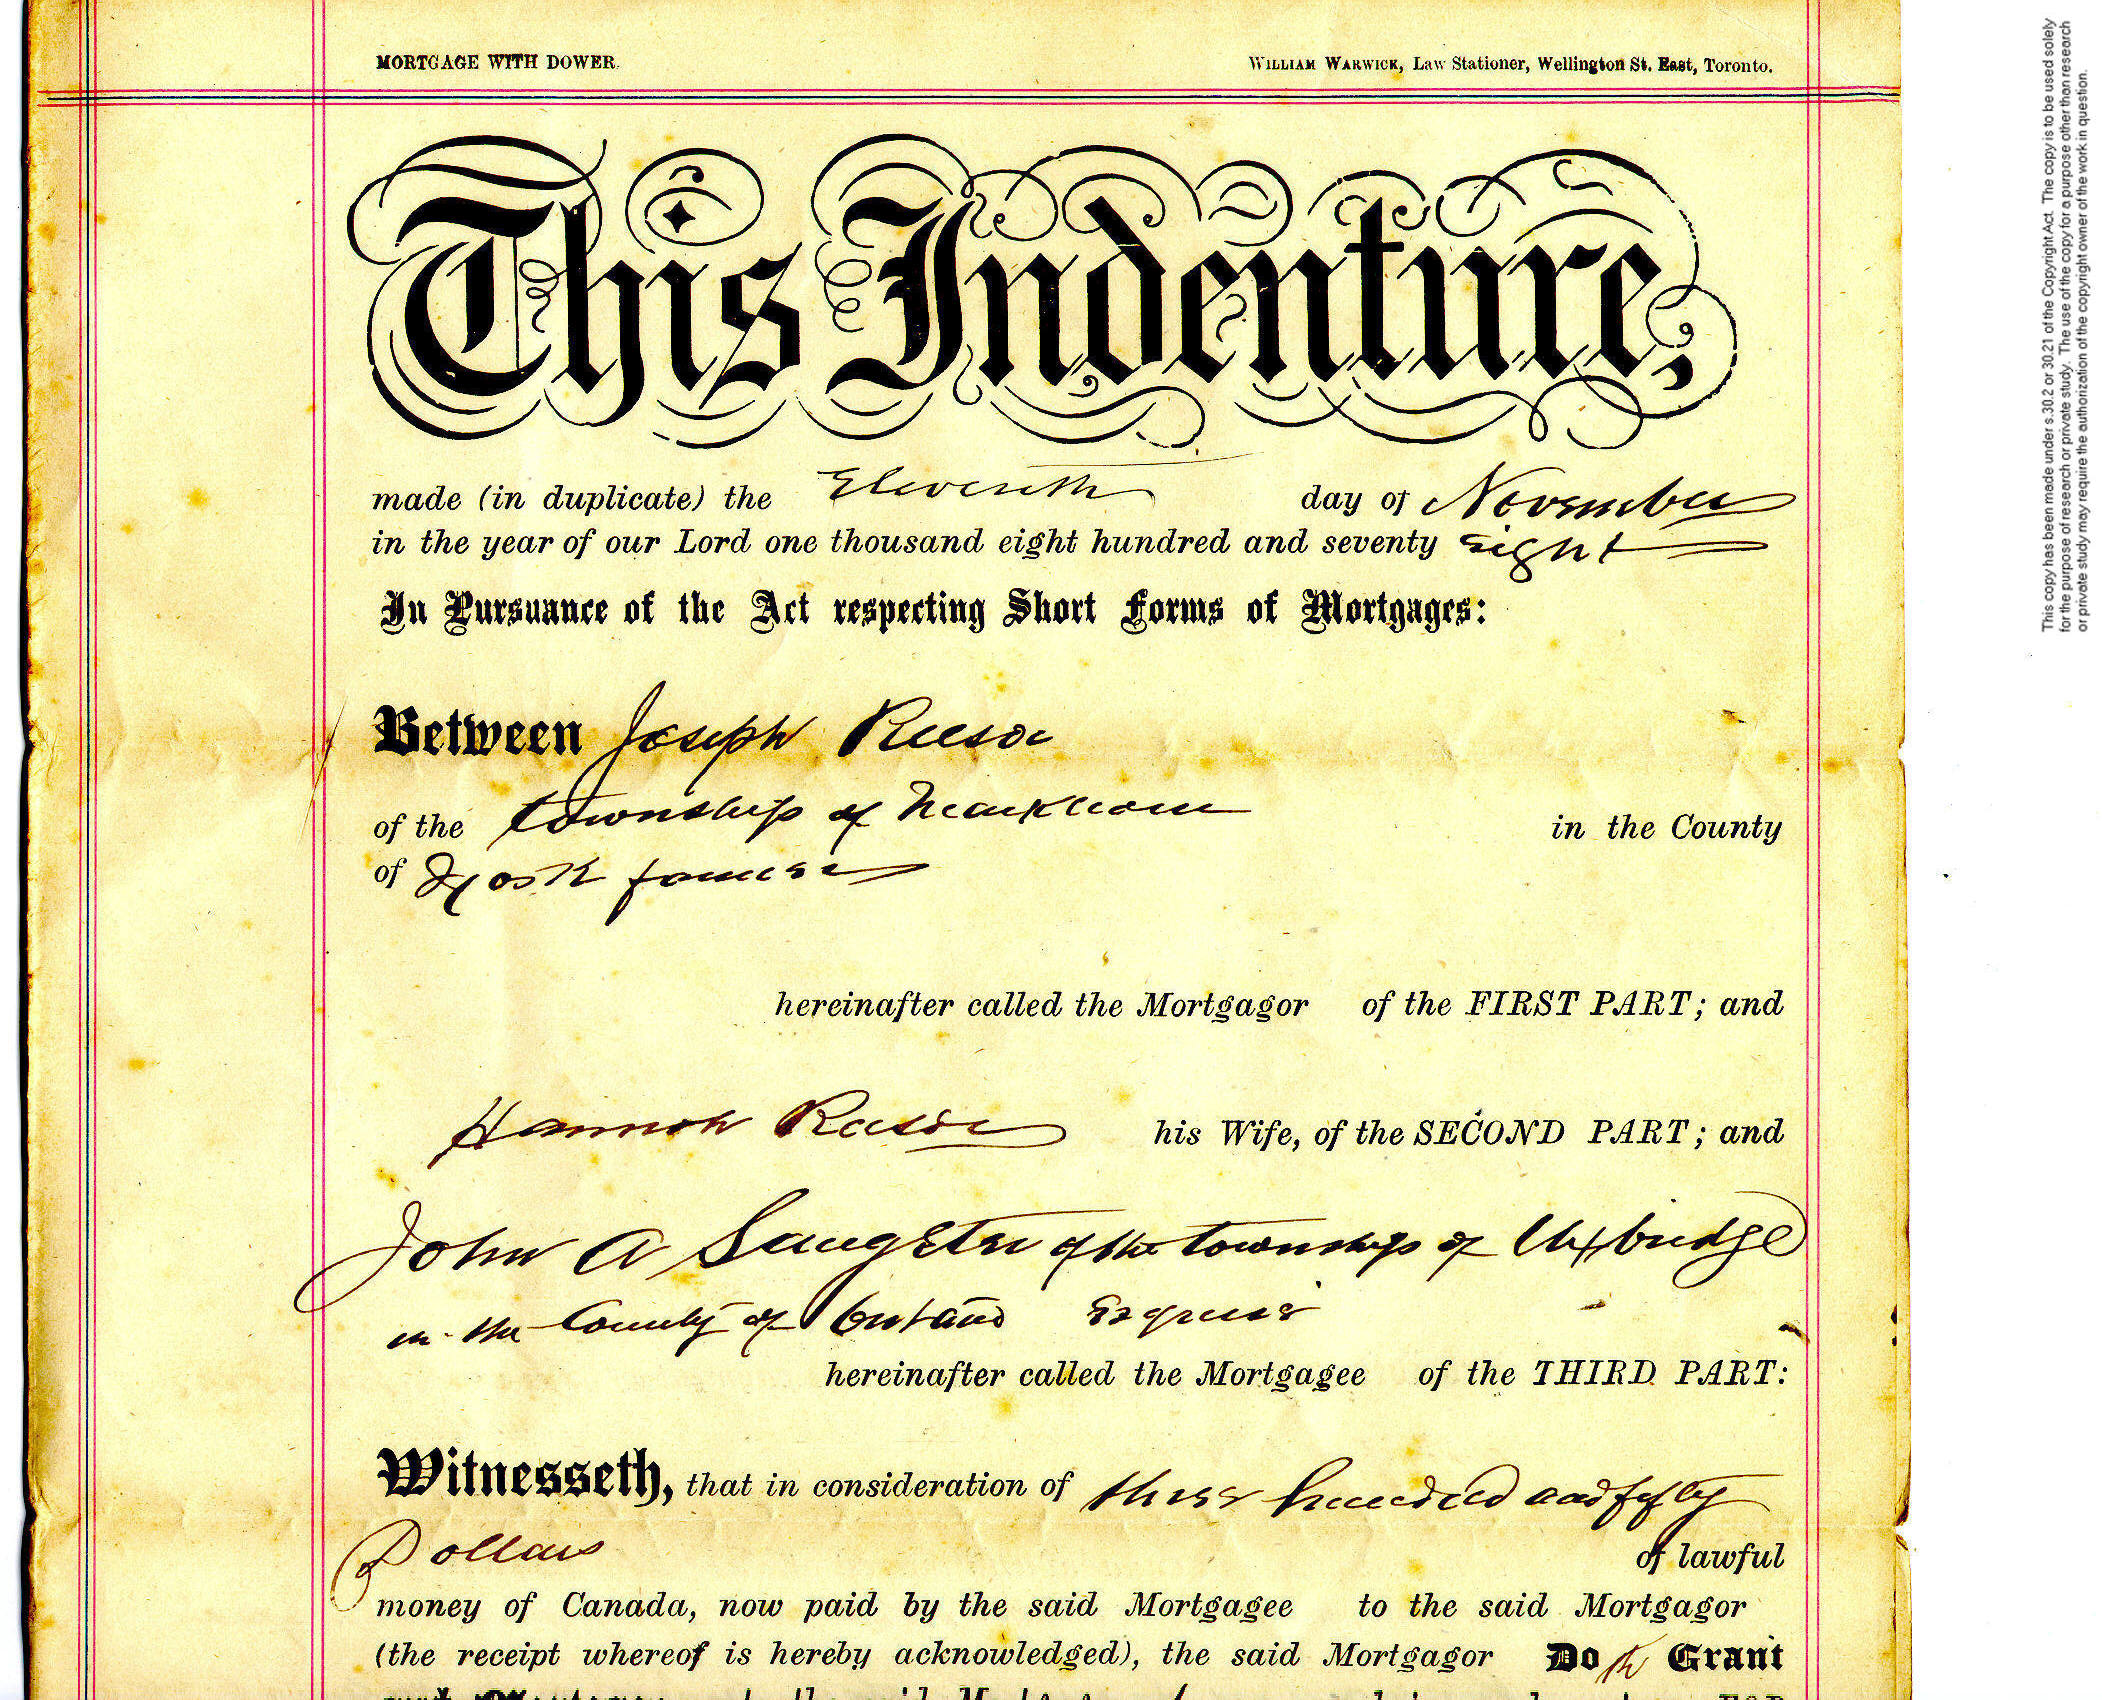 MORTGAGE WITH DOWER.
WILLIAM WARWICK, Law Stationer, Wellington St. East, Toronto.
This Indenture,
made (in duplicate) the Eleventh day of November
in the year of our Lord one thousand eight hundred and seventy eight
In Pursuance of the Act respecting Short Forms of Mortgages:
Between Joseph Reesor
of the township of Markham in the County
of York farmer
hereinafter called the Mortgagor of the FIRST PART; and
Hannah Reesor his Wife, of the SECOND PART; and
John A of the township of Uxbridge
in the County of Ontario Esquire
hereinafter called the Mortgagee of the THIRD PART:
Witnesseth, that in consideration of three hundred and fifty
Dollars of lawful
money of Canada, now paid by the said Mortgagee to the said Mortgagor
(the receipt whereof is hereby acknowledged), the said Mortgagor Doth Grant
This copy has been made under s.30.2 or 30.21 of the Copyright Act. The copy is to be used solely
for the purpose of research or private study. The use of the copy for a purpose other than research
or private study may require the authorization of the copyright owner of the work in question.